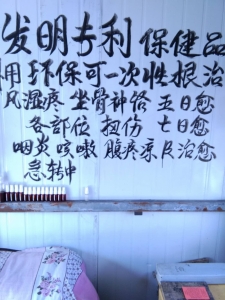 发明专利 保健品
用环保可一次性根治
风湿疼 坐骨神馀 五日愈
各部位 扭伤 七日愈
咽炎 咳嗽 腹疼泵 治愈
急转中